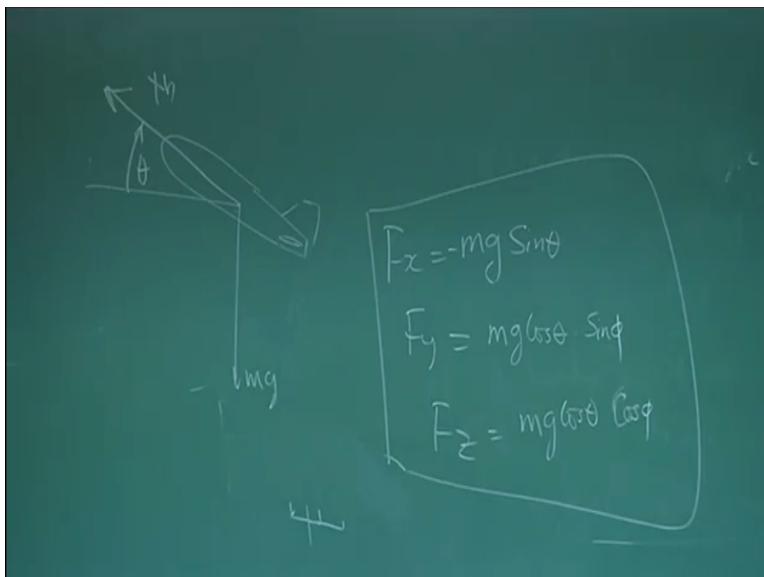 θ
mg
Fx = -mg Sinθ
Fy = mg Cosθ Sinϕ
Fz = mg Cosθ Cosϕ